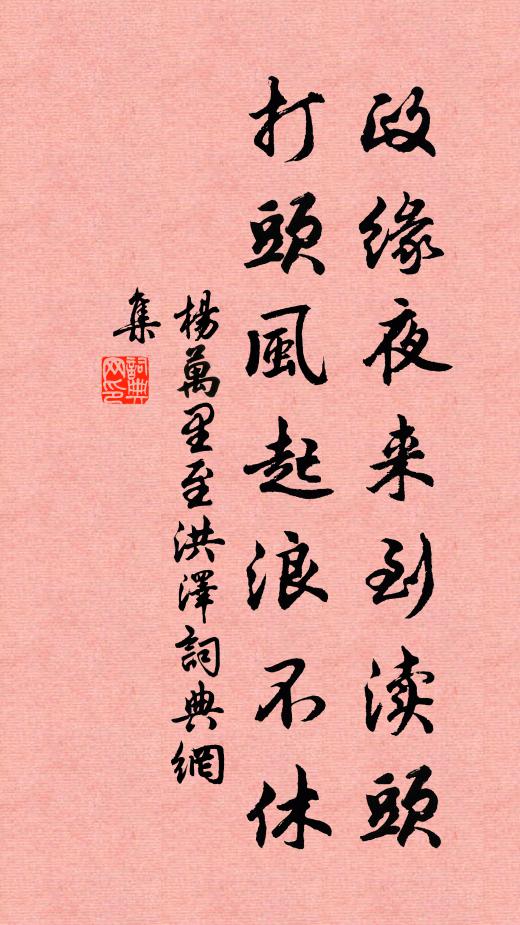 政缘夜来到渎頭
打頭風起浪不休
楊萬里至洪澤詞典網
集
詞典網印